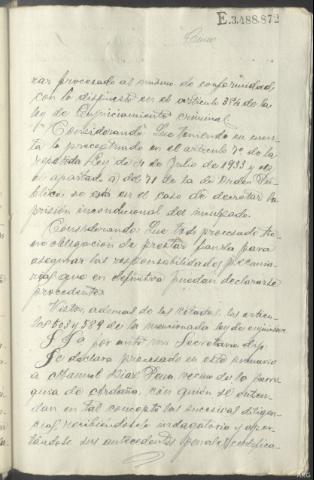 E.3.488.872
rar procesado al mismo de conformidad
con lo dispuesto en el artículo 384 de la
ley de Enjuiciamiento criminal.
Considerando: Que teniendo en cuen-
ta lo preceptuado en el artículo 7º de la
Ley de de Julio de 1933 y en
el apartado del 71 de la de Orden Pú-
blico, se está en el caso de decretar la
prisión incondicional del inculpado.
Considerando: Que todo procesado tie-
ne obligación de prestar fianza para
asegurar las responsabilidades pecunia-
rias que en definitiva puedan declararse
procedentes
Vistos, ademas de los citados, los artícu-
los 503 y 589 de la mencionada ley de
S. Sª por ante mi Secretario dijo:
Se declara procesado en este sumario
a Manuel Diaz Pena, vecino de la parro-
quia de con quien se entien-
dan en tal concepto las sucesivas diligen-
cias, recibiendosele indagatoria y apor-
tándose sus antecedentes penales
ARG